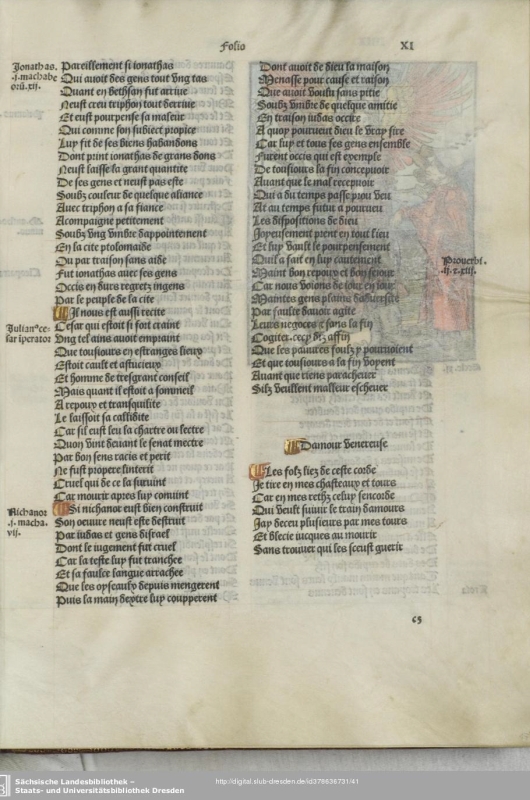 Folio XI
Jonathas.
.j. machabe
orū. xij.
Pareillement si ionathas
Qui auoit des gens tout vng tas
Quant en bethsan fut arriue
Neust creu triphon tout derriue
Et eust pourpense sa maleur
Qui comme son subiect propice
Luy fit de ses biens habandons
Dont print ionathas de grans dons
Neust laisse la grant quantite
De ses gens et neust pas este
Soubz couleur de quelque aliance
Auec triphon a sa fiance
Acompaigne petitement
Soubz vng vmbre dappointement
En la cite ptolomaide
Ou par traison sans aide
Fut ionathas auec ses gens
Occis en durs regretz ingens
Par le peuple de la cite
Il nous est aussi recite
Julian⁹ ce
sar īperator
Cesar qui estoit si fort craint
Vng tel ains auoit empraint
Que tousiours en estranges lieux
Estoit cault et astucieux
Et homme de tresgrant conseil
Mais quant il estoit a sommeil
A repoux et tranquilite
Le laissoit sa callidite
Car sil eust leu la chartre ou lectre
Quon vint deuant le senat mectre
Par bon sens racis et perit
Ne fust propere linterit
Cruel qui de ce la suruint
Car mourir apres luy conuint
Nichanor
.j. macha.
vij.
Si nichanor eust bien construit
Son oeuure neust este destruit
Par iudas et gens disrael
Dont le iugement fut cruel
Car la teste luy fut tranchee
Et sa faulce langue arrachee
Que les oyseaulx depuis mengerent
Puis la main dextre luy coupperent
Dont auoit de dieu la maison
Menasse pour cause et raison
Que auoit voulu sans pitie
Soubz vmbre de quelque amitie
En traison iudas occire
A quoy pourueut dieu le vray sire
Car luy et tous ses gens ensemble
Furent occis qui est exemple
De tousiours la fin conceuoir
Auant que le mal receuoir
Qui a du temps passe prou veu
Et au temps futur a pourueu
Les dispositions de dieu
Joyeusement prent en tout lieu
Et luy vault le pourpensement
Quil a fait en luy cautement
Maint bon repoux et bon seiour
Car nous voions de iour en iour
Maintes gens plains daduersite
Par faulte dauoir agite
Leurs negoces a sans la fin
Cogiter. cecy diz affin
Que les pauures foulz y pouruoient
Et que tousiours a la fin voyent
Auant que riens paracheuer
Silz veullent malheur escheuer
Prouerbi.
.ij. z. xiij.
Damour venereuse
Les folz liez de ceste corde
Je tire en mes chasteaux et tours
Car en mes rethz celuy sencorde
Qui veult suiuir le train damours
Jay deceu plusieurs par mes tours
Et blecie iucques au mourir
Sans trouuer qui les sceust guerir
c5
Sächsische Landesbibliothek –
Staats- und Universitätsbibliothek Dresden
http://digital.slub-dresden.de/id378636731/41